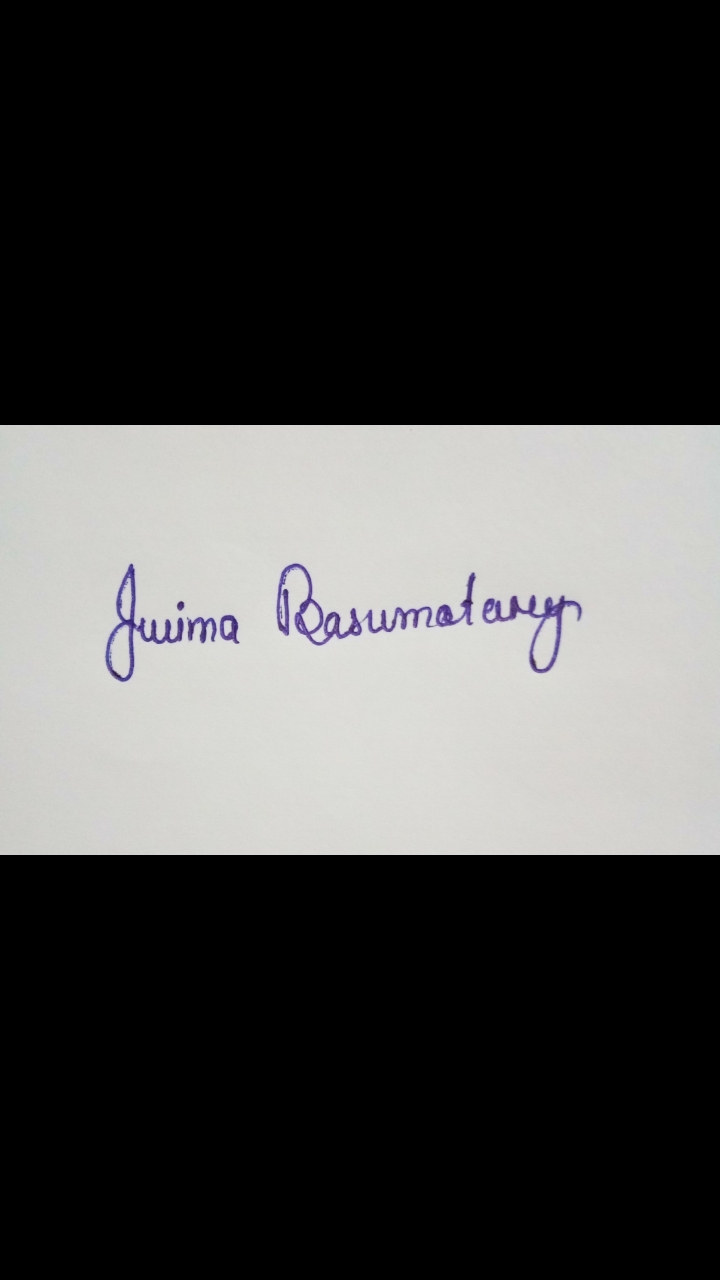 Jwima Basumatary